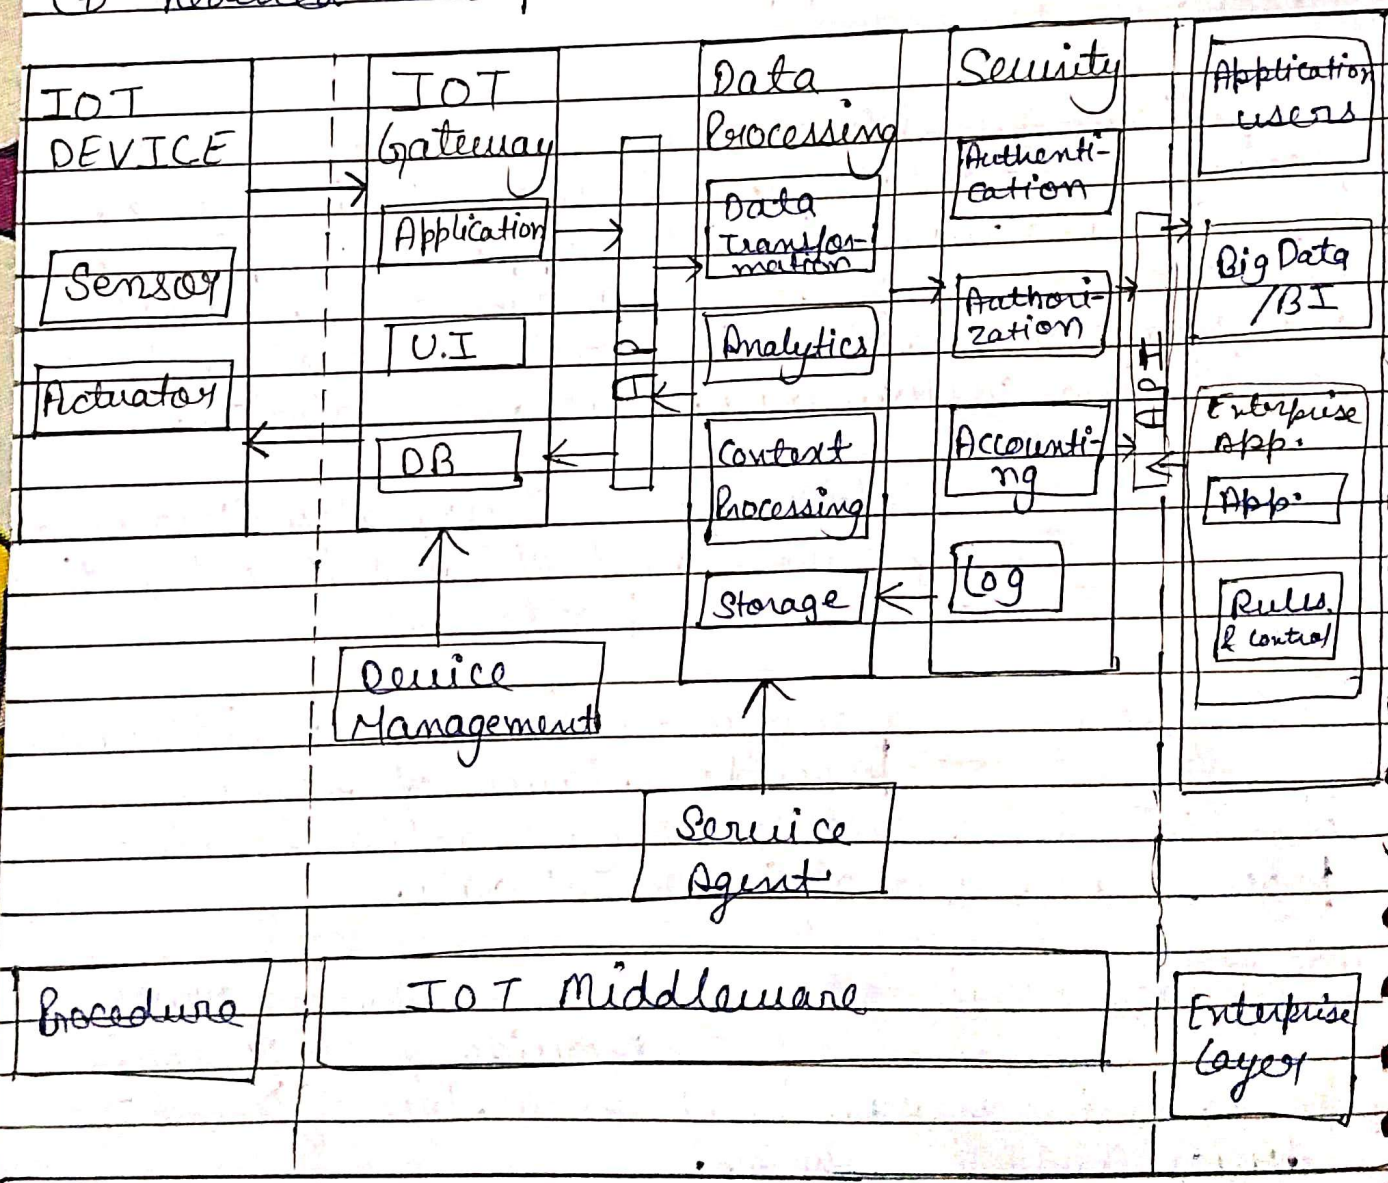 IOT
DEVICE
Sensor
Actuator
IOT
Gateway
Application
U.I
DB
Device
Management
Data
Processing
Data
Transfor-
mation
Analytics
Context
Processing
Storage
Service
Agent
Security
Authenti-
cation
Authori-
zation
Accounti-
ng
Log
API
Application
users
Big Data
/BI
Enterprise
App.
App.
Rules
& control
Procedure
IOT Middleware
Enterprise
Layer